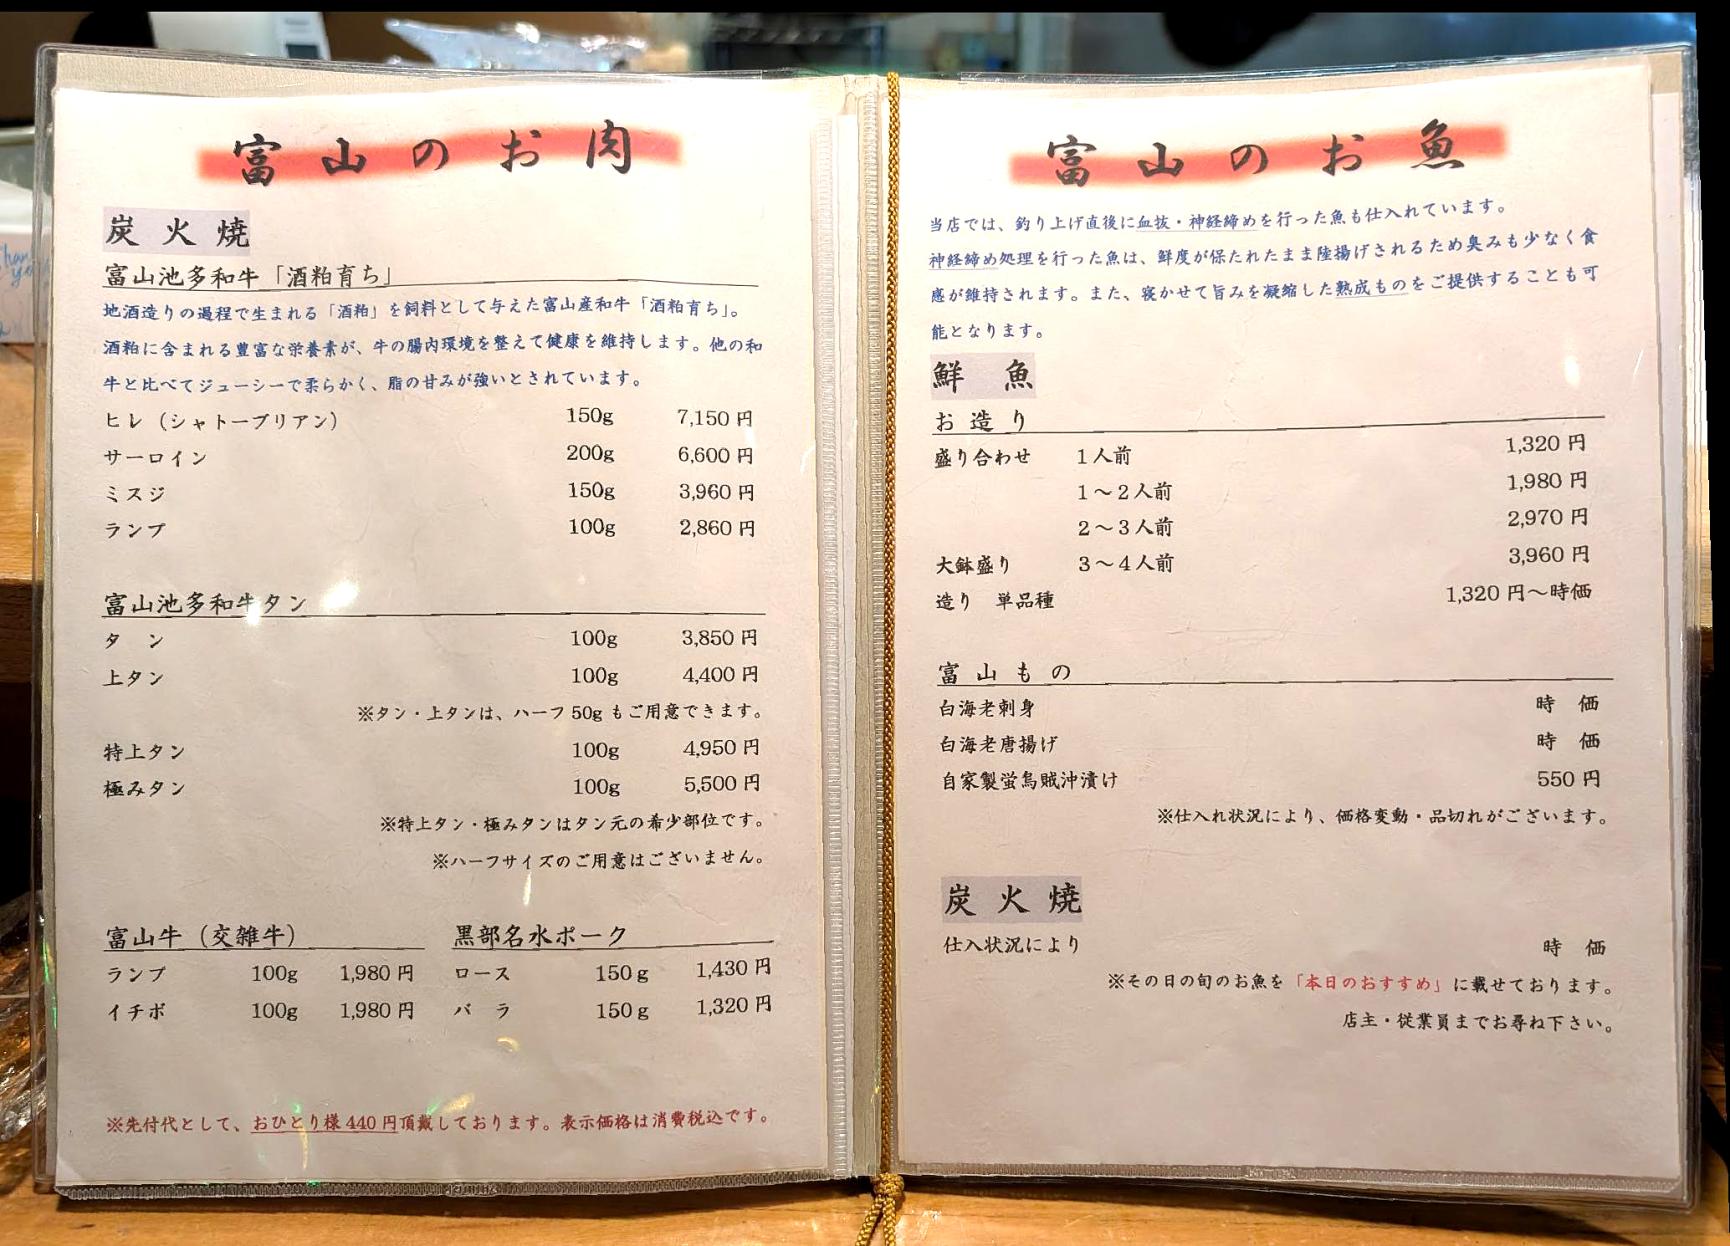 富山のお肉
炭火焼
富山池多和牛「酒粕育ち」
地酒造りの過程で生まれる「酒粕」を飼料として与えた富山産和牛「酒粕育ち」。
酒粕に含まれる豊富な栄養素が、牛の腸内環境を整えて健康を維持します。他の和
牛と比べてジューシーで柔らかく、脂の甘みが強いとされています。
ヒレ（シャトーブリアン） 150g 7,150円
サーロイン 200g 6,600円
ミスジ 150g 3,960円
ランプ 100g 2,860円
富山池多和牛タン
タン 100g 3,850円
上タン 100g 4,400円
※タン・上タンは、ハーフ50gもご用意できます。
特上タン 100g 4,950円
極みタン 100g 5,500円
※特上タン・極みタンはタン元の希少部位です。
※ハーフサイズのご用意はございません。
富山牛（交雑牛）
ランプ 100g 1,980円
イチボ 100g 1,980円
黒部名水ポーク
ロース 150g 1,430円
バラ 150g 1,320円
※先付代として、おひとり様440円頂戴しております。表示価格は消費税込です。
富山のお魚
当店では、釣り上げ直後に血抜・神経締めを行った魚も仕入れています。
神経締め処理を行った魚は、鮮度が保たれたまま陸揚げされるため臭みも少なく食
感が維持されます。また、寝かせて旨みを凝縮した熟成ものをご提供することも可
能となります。
鮮魚
お造り
盛り合わせ 1人前 1,320円
1～2人前 1,980円
2～3人前 2,970円
大鉢盛り 3～4人前 3,960円
造り 単品種 1,320円～時価
富山もの
白海老刺身 時価
白海老唐揚げ 時価
自家製蛍烏賊沖漬け 550円
※仕入れ状況により、価格変動・品切れがございます。
炭火焼
仕入状況により 時価
※その日の旬のお魚を「本日のおすすめ」に載せております。
店主・従業員までお尋ね下さい。